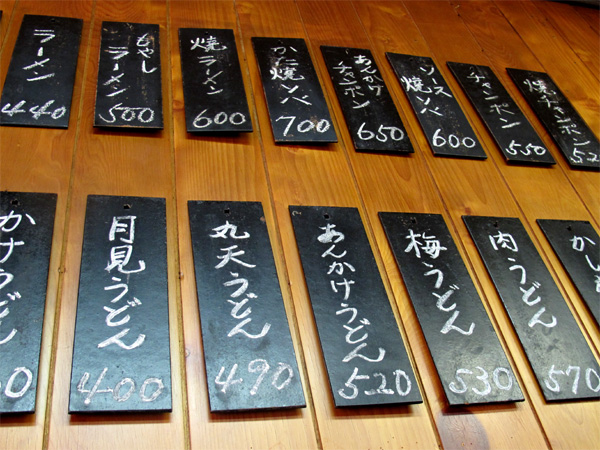 ラーメン
440
もやし
ラーメン
500
焼ラーメン
600
かた焼ソバ
700
あんかけ
チャンポン
650
ソース
焼ソバ
600
チャンポン
550
焼チャンポン
52
かけうどん
0
月見うどん
400
丸天うどん
490
あんかけうどん
520
梅うどん
530
肉うどん
570
かし